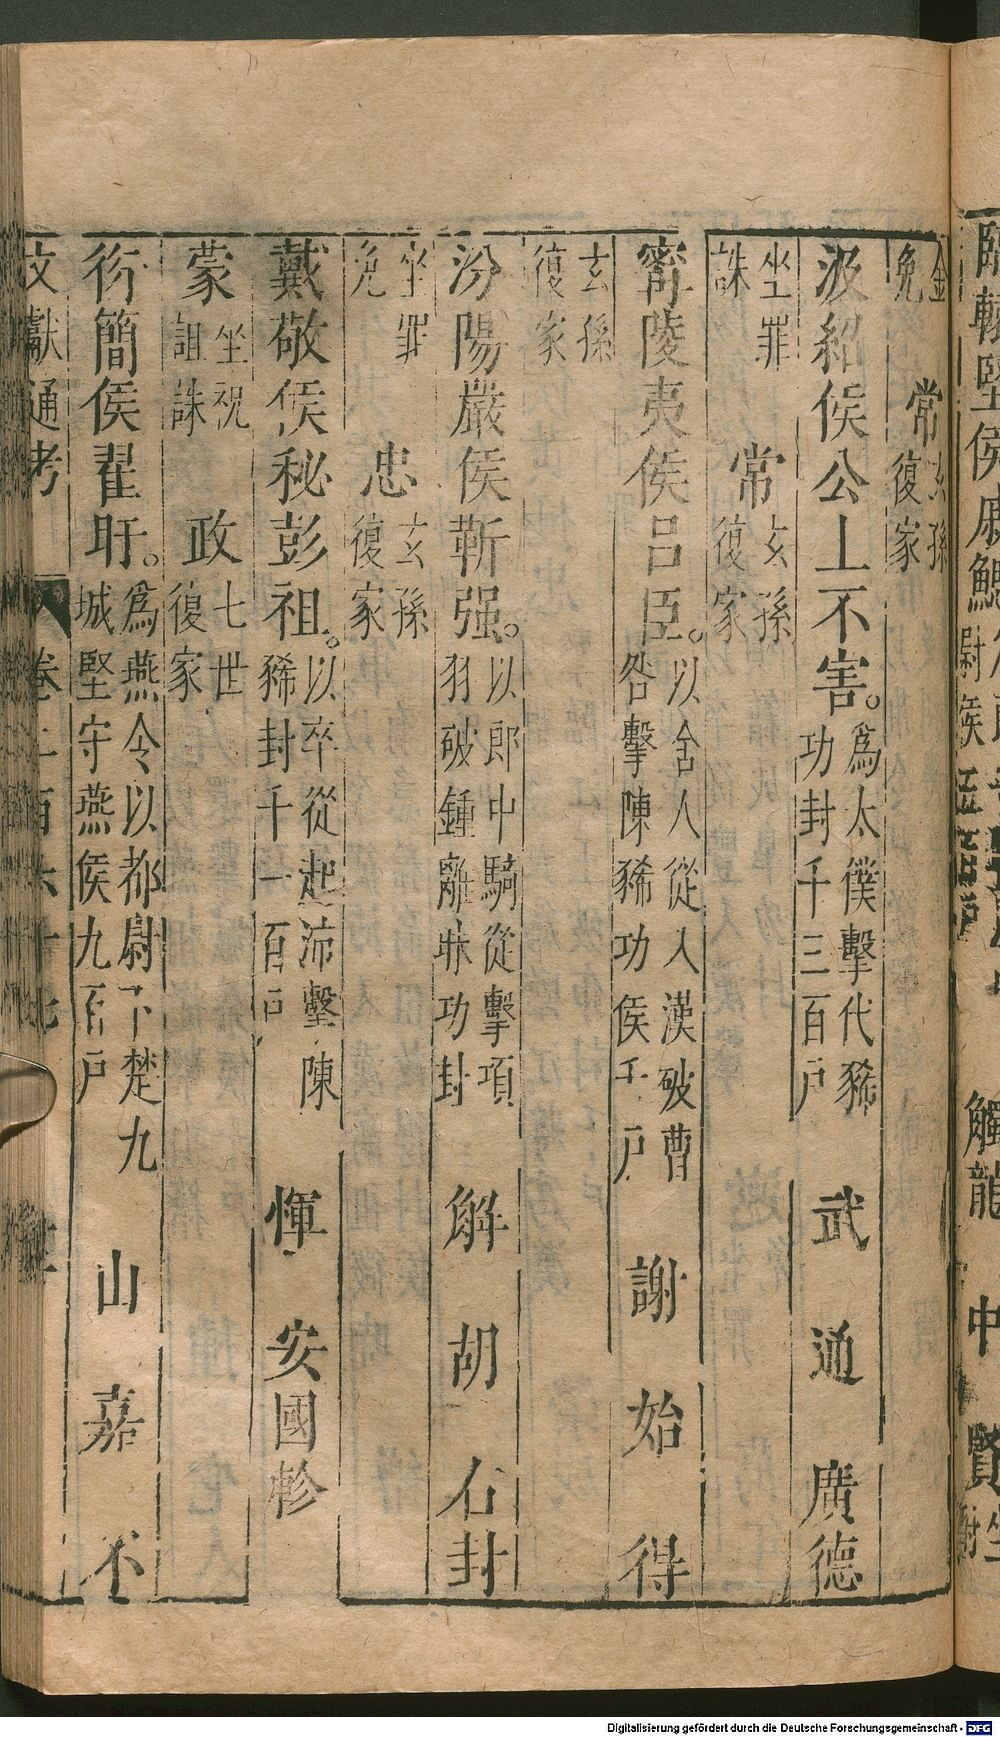 金免　常　玄孫復家
汲紹侯公上不害。爲太僕擊代豨功封千三百戶　武　通　廣德
坐罪誅　常　玄孫復家
甯陵夷侯吕臣。以舍人從入漢破曹咎擊陳豨功侯千戶　謝　始　得
玄孫復家
汾陽嚴侯靳强。以郎中騎從擊項羽破鍾離昧功封　解　胡　石封
坐罪免　忠　玄孫復家
戴敬侯秘彭祖。以卒從起沛擊陳豨封千一百戶　惲　安國　軫
蒙　坐祝詛誅　政　七世復家
衍簡侯翟盱。爲燕令以都尉下楚九城堅守燕侯九百戶　山　嘉　不
文獻通考　卷二百六十七
臨轅堅侯戚鰓　尉侯　觸龍　中　賢
Digitalisierung gefördert durch die Deutsche Forschungsgemeinschaft - DFG